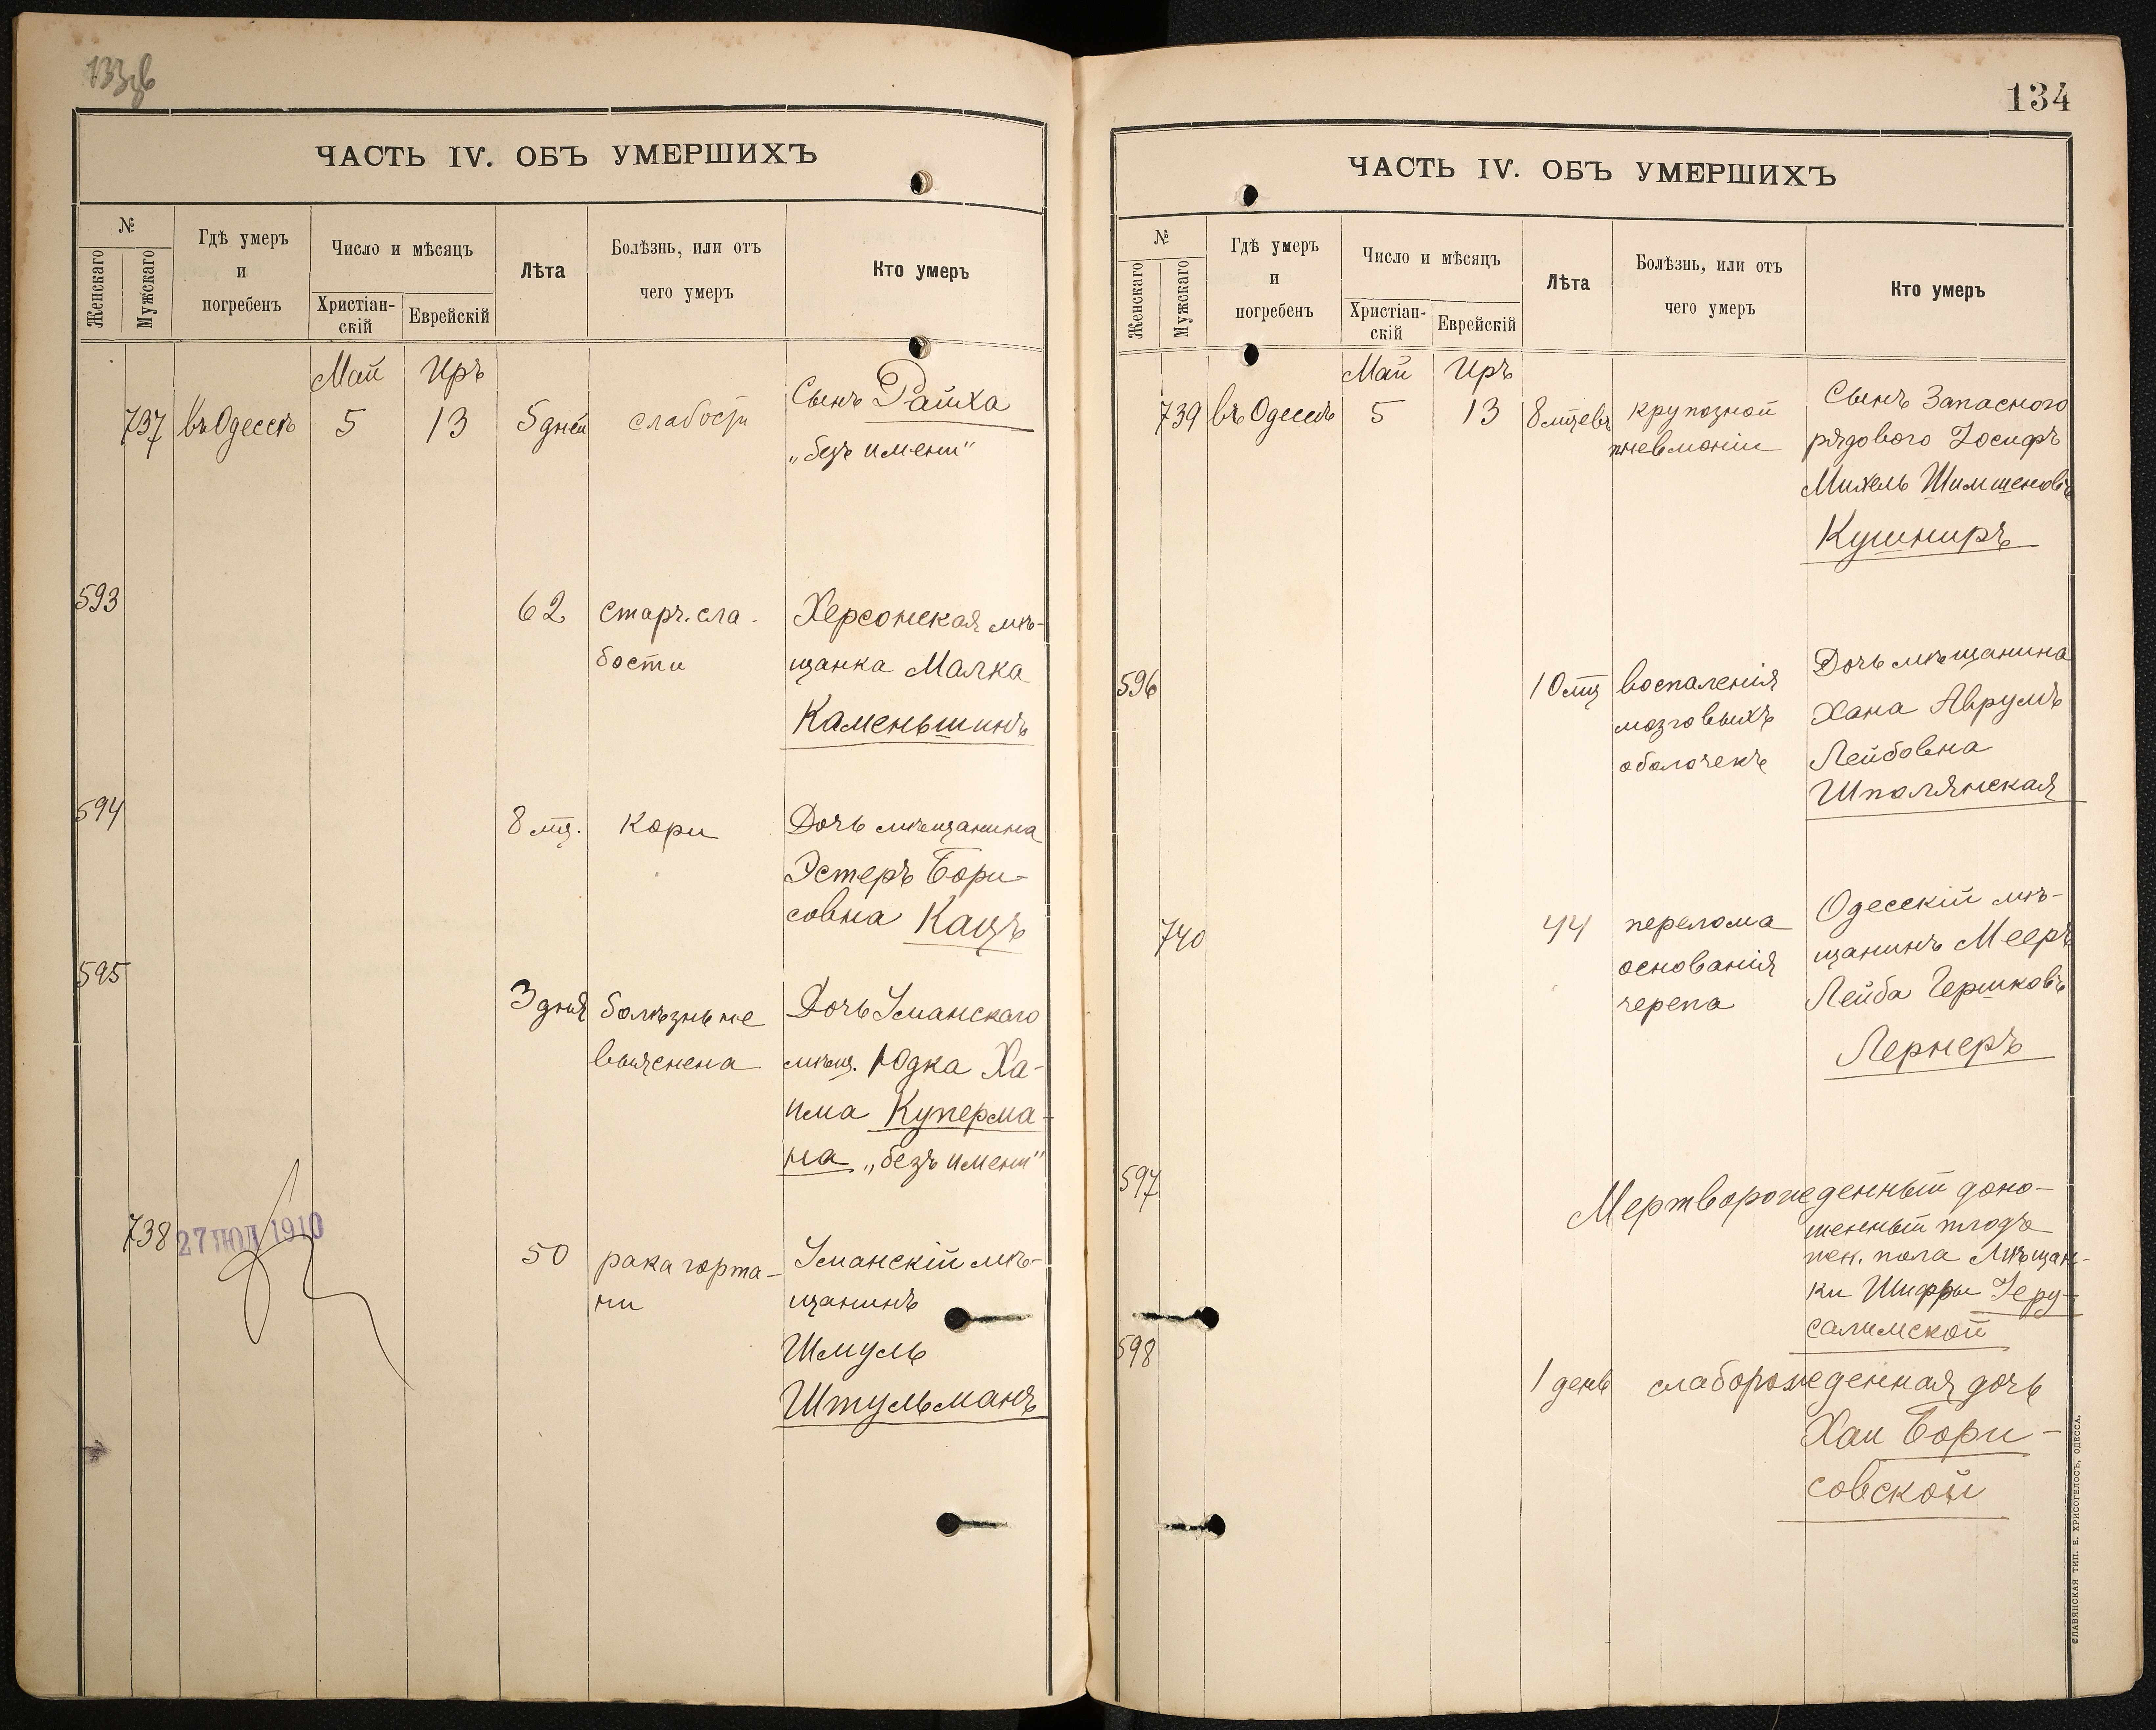 133об
ЧАСТЬ IV. ОБЪ УМЕРШИХЪ
№
Женскаго
Мужскаго
Гдѣ умеръ
и
погребенъ
Число и мѣсяцъ
Христіан-
скій
Еврейскій
Лѣта
Болѣзнь, или отъ
чего умеръ
Кто умеръ
Май Иръ
737 въ Одессѣ 5 13 5 дней слабости Сынъ Райха
„безъ имени"
593 62 старч. сла- Херсонская мѣ-
бости щанка Малка
Каменьшинъ
594 8 мц. Кори Дочь мѣщанина
Эстеръ Бори-
совна Кацъ
595 3 дня болѣзнь не Дочь Уманскаго
выяснена мѣщ. Юдка Ха-
има Куперма-
на „безъ имени"
738 27 ІЮЛ 1910 50 рака горта- Уманскій мѣ-
ни щанинъ
Шмуль
Штульманъ
134
ЧАСТЬ IV. ОБЪ УМЕРШИХЪ
№
Женскаго
Мужскаго
Гдѣ умеръ
и
погребенъ
Число и мѣсяцъ
Христіан-
скій
Еврейскій
Лѣта
Болѣзнь, или отъ
чего умеръ
Кто умеръ
Май Иръ
739 въ Одессѣ 5 13 8 мцевъ крупозной Сынъ Запасного
пневмоніи рядового Іосифъ
Михель Шимшеновъ
Кушниръ
596 10 мц воспаленія Дочь мѣщанина
мозговыхъ Хана Аврумъ
оболочекъ Лейбовна
Шполянская
740 44 перелома Одесскій мѣ-
основанія щанинъ Мееръ
черепа Лейба Гершковъ
Лернеръ
597 Мертворожденный доно-
шенный плодъ
жен. пола Мѣщан-
ки Шифры Іеру-
салимской
598 1 день слаборожденная дочь
Хаи Бори-
совской
СЛАВЯНСКАЯ ТИП. Е. ХРИСОГЕЛОСЪ, ОДЕССА.